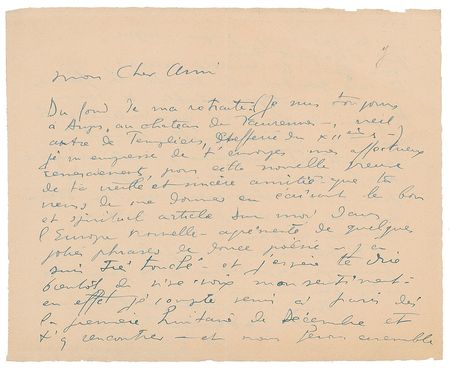 mon Cher Ami
Du fond de ma retraite (je suis toujours
à Aups, au chateau de Taurenne -, vieil
antre de Templiers, du XIIème -)
je m'empresse de t'envoyer mes affectueux
remerciements, pour cette nouvelle preuve
de ta vieille et sincère amitié que tu
viens de me donner en écrivant le bon
et spirituel article sur moi dans
l'Europe nouvelle - agrémenté de quelques
jolies phrases de douce poésie - J'en
suis très touché - et j'espère te dire
bientôt de vive voix mon sentiment -
en effet je compte venir à Paris dès
la première de Décembre et
t'y rencontrer - et nous ensemble